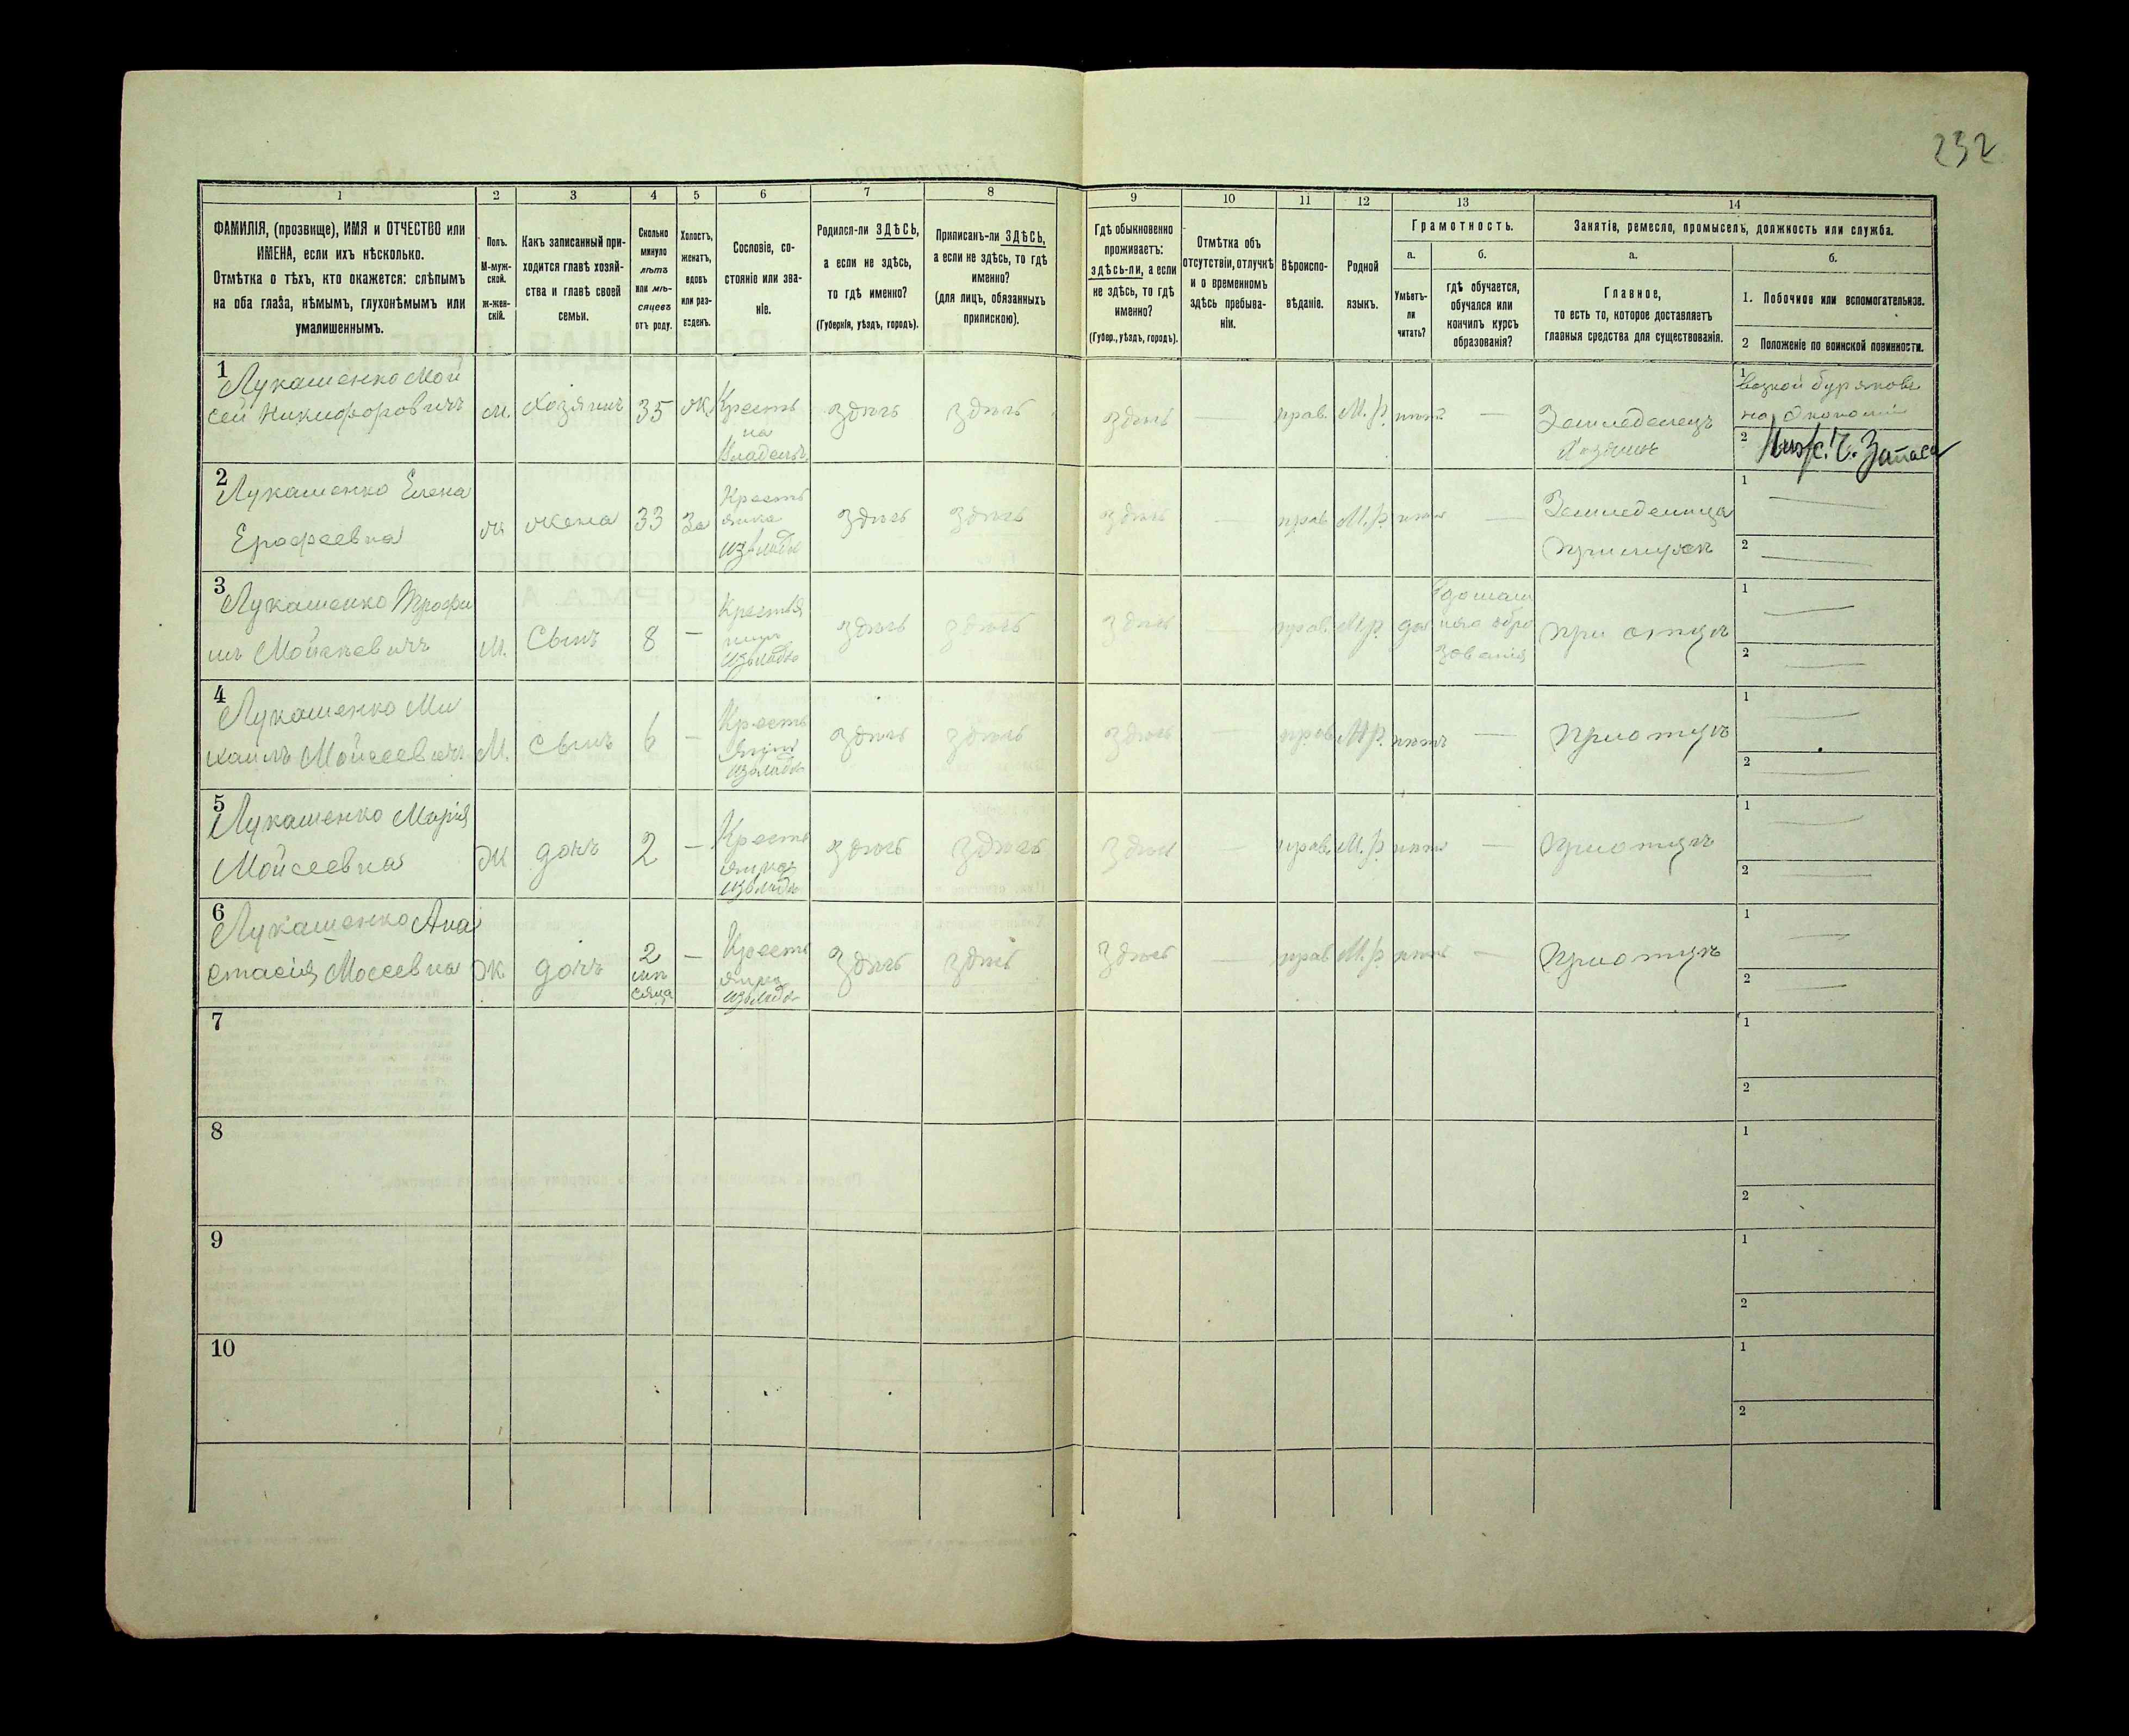 232
1 2 3 4 5 6 7 8 9 10 11 12 13 14
ФАМИЛІЯ, (прозвище), ИМЯ и ОТЧЕСТВО или
ИМЕНА, если ихъ нѣсколько.
Отмѣтка о тѣхъ, кто окажется: слѣпымъ
на оба глаза, нѣмымъ, глухонѣмымъ или
умалишеннымъ.
Полъ.
М-муж-
ской.
ж-жен-
скій.
Какъ записанный при-
ходится главѣ хозяй-
ства и главѣ своей
семьи.
Сколько
минуло
лѣтъ
или мѣ-
сяцевъ
отъ роду.
Холостъ,
женатъ,
вдовъ
или раз-
веденъ.
Сословіе, со-
стояніе или зва-
ніе.
Родился-ли ЗДѢСЬ,
а если не здѣсь,
то гдѣ именно?
(Губернія, уѣздъ, городъ).
Приписанъ-ли ЗДѢСЬ,
а если не здѣсь, то гдѣ
именно?
(для лицъ, обязанныхъ
припискою).
Гдѣ обыкновенно
проживаетъ:
здѣсь-ли, а если
не здѣсь, то гдѣ
именно?
(Губер., уѣздъ, городъ).
Отмѣтка объ
отсутствіи, отлучкѣ
и о временномъ
здѣсь пребыва-
ніи.
Вѣроиспо-
вѣданіе.
Родной
языкъ.
Грамотность.
а.
Умѣетъ-
ли
читать?
б.
гдѣ обучается,
обучался или
кончилъ курсъ
образованія?
Занятія, ремесло, промыселъ, должность или служба.
а.
Главное,
то есть то, которое доставляетъ
главныя средства для существованія.
б.
1. Побочное или вспомогательное.
2 Положеніе по воинской повинности.
1
Лукашенко Мой
сей Никифоровичъ
м.
Хозяинъ
35
ж
Кресть
на
Владельч.
здѣсь
здѣсь
здѣсь
—
прав.
М.р.
нѣтъ
—
Земледелецъ
Хозяинъ
1
возкой буряковъ
на экономіи
2
Запаса
2
Лукашенко Елена
Ерофеевна
ж
жена
33
За
Кресть
янка
изъ владѣ
здѣсь
здѣсь
здѣсь
—
прав.
М.р.
нѣтъ
—
Земледелица
при мужѣ
1 —
2 —
3
Лукашенко Трофи
мъ Мойсѣевичъ
М.
Сынъ
8
—
Крестья
нинъ
изъ владѣ
здѣсь
здѣсь
здѣсь
—
прав.
М.р.
да
домаш
няго обра
зованія
при отцѣ
1 —
2 —
4
Лукашенко Ми
хаилъ Мойсеевичъ
М.
сынъ
6
—
Кресть
янинъ
изъ владѣ
здѣсь
здѣсь
здѣсь
—
прав.
М.р.
нѣтъ
—
при отцѣ
1 —
2 —
5
Лукашенко Марія
Мойсеевна
Ж
дочь
2
—
Кресть
янка
изъ владѣ
здѣсь
здѣсь
здѣсь
—
прав.
М.р.
нѣтъ
—
при отцѣ
1 —
2 —
6
Лукашенко Ана
стасія Мосеевна
Ж.
дочь
2
мѣ
сяца
—
Кресть
янка
изъ владѣ
здѣсь
здѣсь
здѣсь
—
прав.
М.р.
нѣтъ
—
при отцѣ
1 —
2 —
7
1
2
8
1
2
9
1
2
10
1
2